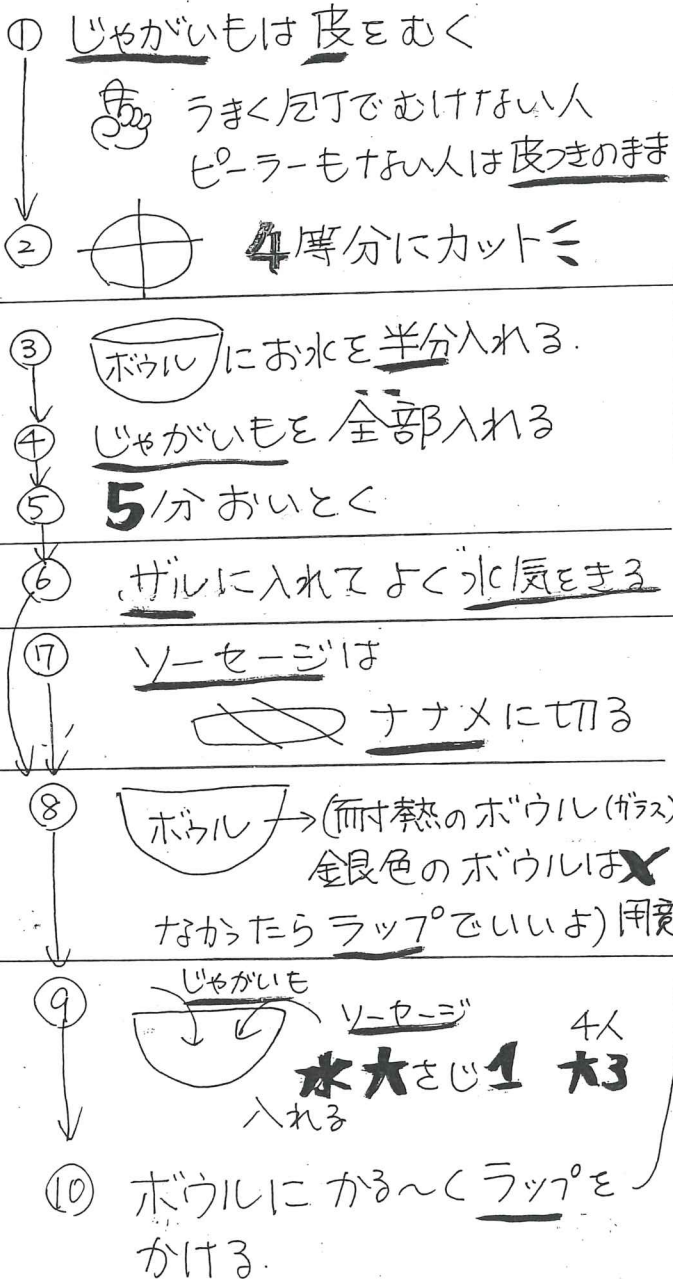 ① じゃがいもは皮をむく
うまく包丁でむけない人
ピーラーもない人は皮つきのまま
② 4等分にカット
③ ボウルにお水を半分入れる.
④ じゃがいもを全部入れる
⑤ 5分おいとく
⑥ ザルに入れてよく水気をきる
⑦ ソーセージは
ナナメに切る
⑧ ボウル→(耐熱のボウル(ガラス)
銀色のボウルは×
なかったらラップでいいよ)用意
⑨ じゃがいも
ソーセージ
4人
水大さじ1 大3
入れる
⑩ ボウルにかる〜くラップを
かける.